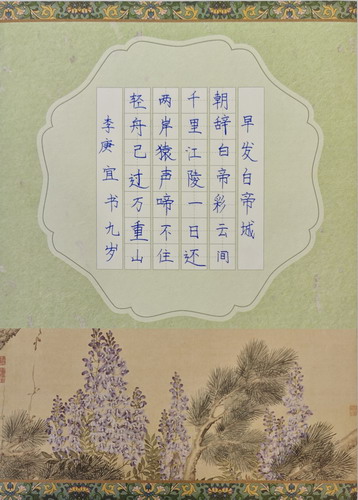 早发白帝城
朝辞白帝彩云间
千里江陵一日还
两岸猿声啼不住
轻舟已过万重山
李庚宜书九岁